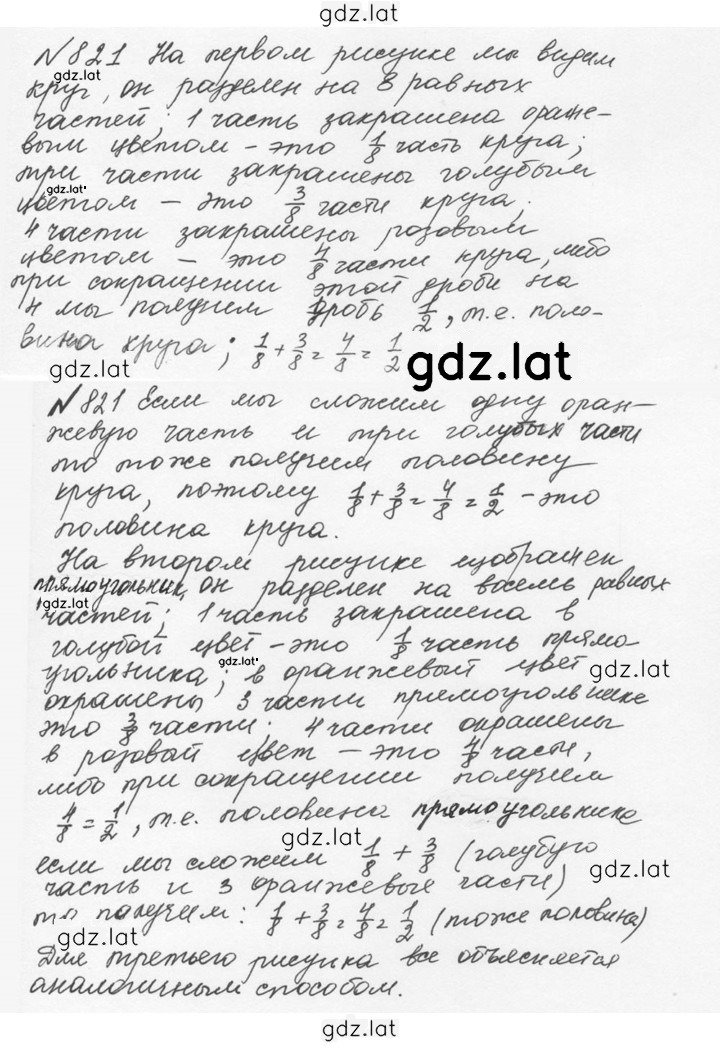 gdz.lat
№ 821 На первом рисунке мы видим
gdz.lat
круг, он разделен на 8 равных
частей; 1 часть закрашена оранже-
вым цветом – это 1/8 часть круга;
три части закрашены голубым
gdz.lat
цветом – это 3/8 части круга;
4 части закрашены розовым
цветом – это 4/8 части круга, либо
при сокращении этой дроби на
4 мы получим дробь 1/2, т.е. поло-
вина круга; 1/8 + 3/8 = 4/8 = 1/2
gdz.lat
gdz.lat
№ 821 Если мы сложим одну оран-
жевую часть и три голубых части
то тоже получим половину
круга, поэтому 1/8 + 3/8 = 4/8 = 1/2 – это
половина круга.
На втором рисунке изображен
прямоугольник, он разделен на восемь равных
gdz.lat
частей; 1 часть закрашена в
голубой цвет – это 1/8 часть прямо
gdz.lat
угольника; в оранжевый цвет
gdz.lat
окрашены 3 части прямоугольника
это 3/8 части; 4 части окрашены
в розовый цвет – это 4/8 части,
либо при сокращении получим
4/8 = 1/2, т.е. половина прямоугольника
gdz.lat
если мы сложим 1/8 + 3/8 (голубую
gdz.lat
часть и 3 оранжевые части)
то получим: 1/8 + 3/8 = 4/8 = 1/2 (тоже половина)
gdz.lat
Для третьего рисунка все объясняется
аналогичным способом.
gdz.lat